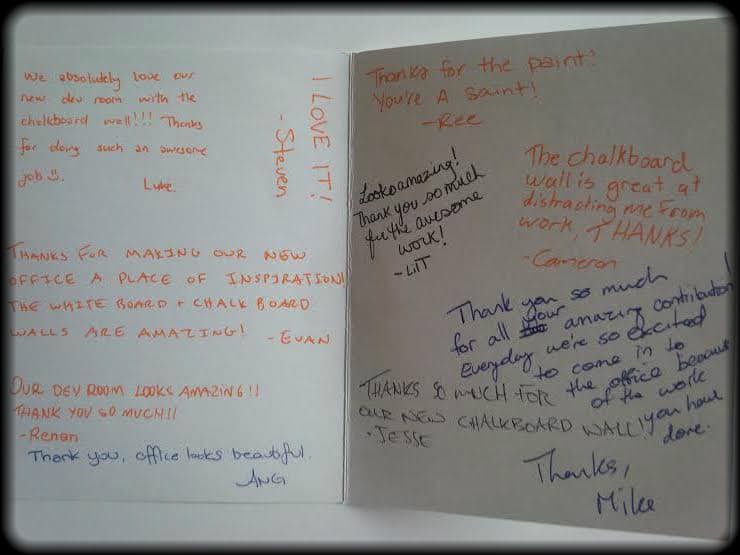 We absolutely love our
new dev room with the
chalkboard wall!!! Thanks
for doing such an awesome
job☺.
Luke.
I LOVE IT!
- Steven
THANKS FOR MAKING OUR NEW
OFFICE A PLACE OF INSPIRATION!
THE WHITE BOARD + CHALK BOARD
WALLS ARE AMAZING! - EVAN
OUR DEV ROOM LOOKS AMAZING!!
THANK YOU SO MUCH!!
-Renan
Thank you, office looks beautiful.
ANG
Thanks for the paint!
You're A saint!
-Ree
Looks amazing!
Thank you so much
for the awesome
work!
-LiT
The chalkboard
wall is great at
distracting me from
work, THANKS!
-Cameron
Thank you so much
for all your amazing contribution!
Everyday we're so excited
to come in to
the office because
of the work
you have
done.
Thanks,
Mike
THANKS SO MUCH FOR
OUR NEW CHALKBOARD WALL!
-JESSE